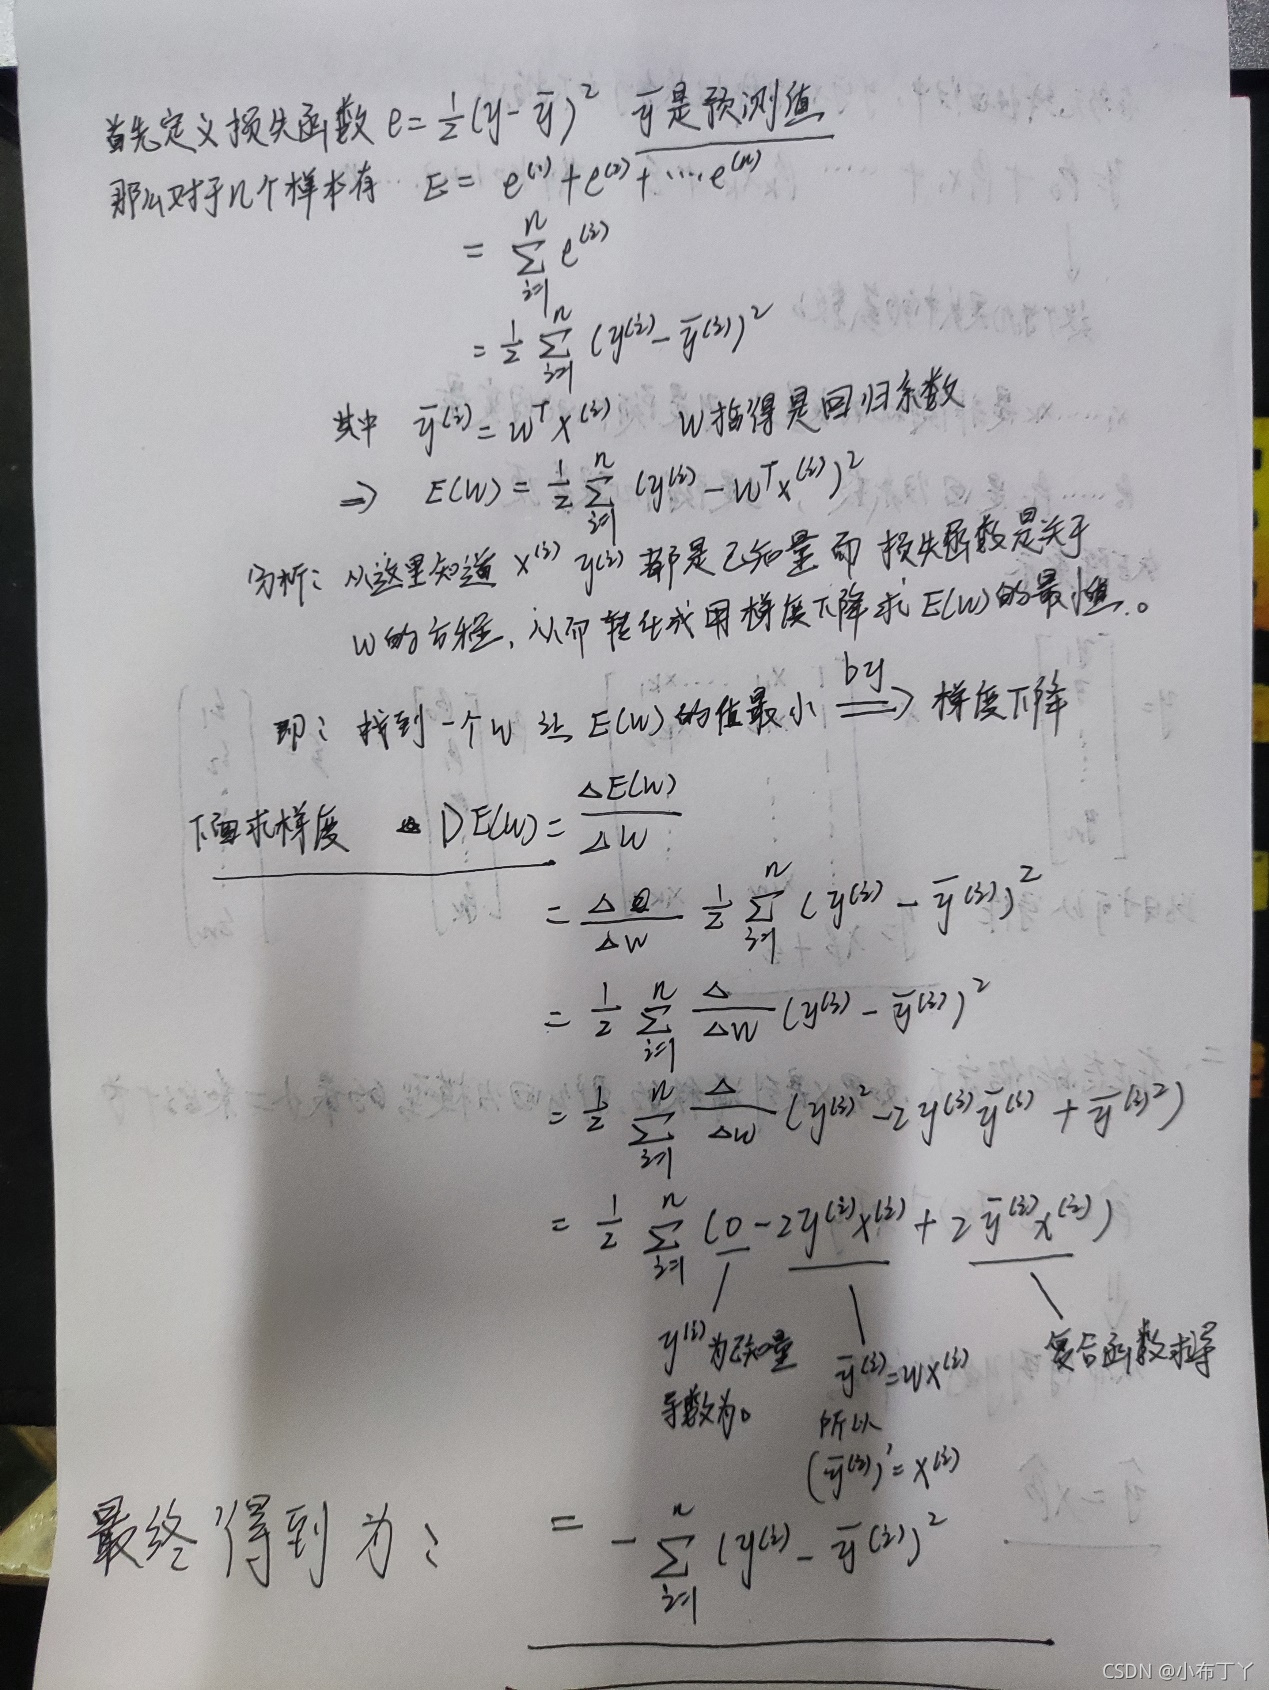 首先定义损失函数 e = 1/2 (y - ȳ)² ȳ是预测值
那么对于n个样本有 E = e⁽¹⁾ + e⁽²⁾ + ····e⁽ⁿ⁾
= Σᵢ₌₁ⁿ e⁽ⁱ⁾
= 1/2 Σᵢ₌₁ⁿ (y⁽ⁱ⁾ - ȳ⁽ⁱ⁾)²
其中 ȳ⁽ⁱ⁾ = wᵀx⁽ⁱ⁾ W指得是回归系数
⇒ E(W) = 1/2 Σᵢ₌₁ⁿ (y⁽ⁱ⁾ - wᵀx⁽ⁱ⁾)²
分析: 从这里知道 x⁽ⁱ⁾ y⁽ⁱ⁾ 都是已知量而 损失函数是关于
W的方程, 从而转化成用梯度下降求E(W)的最小值。
即: 找到一个W 让 E(W)的值最小 by ⇒ 梯度下降
下面求梯度 DE(W) = ΔE(W)/ΔW
= Δ/ΔW 1/2 Σᵢ₌₁ⁿ (y⁽ⁱ⁾ - ȳ⁽ⁱ⁾)²
= 1/2 Σᵢ₌₁ⁿ Δ/ΔW (y⁽ⁱ⁾ - ȳ⁽ⁱ⁾)²
= 1/2 Σᵢ₌₁ⁿ Δ/ΔW (y⁽ⁱ⁾² - 2y⁽ⁱ⁾ȳ⁽ⁱ⁾ + ȳ⁽ⁱ⁾²)
= 1/2 Σᵢ₌₁ⁿ (0 - 2y⁽ⁱ⁾x⁽ⁱ⁾ + 2ȳ⁽ⁱ⁾x⁽ⁱ⁾)
y⁽ⁱ⁾为已知量
导数为0
ȳ⁽ⁱ⁾ = wx⁽ⁱ⁾
所以
(ȳ⁽ⁱ⁾)' = x⁽ⁱ⁾
复合函数求导
最终得到为: = - Σᵢ₌₁ⁿ (y⁽ⁱ⁾ - ȳ⁽ⁱ⁾)²
CSDN @小布丁丫